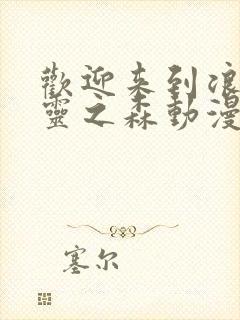 歡迎来到浪
靈之森動漫
塞尔